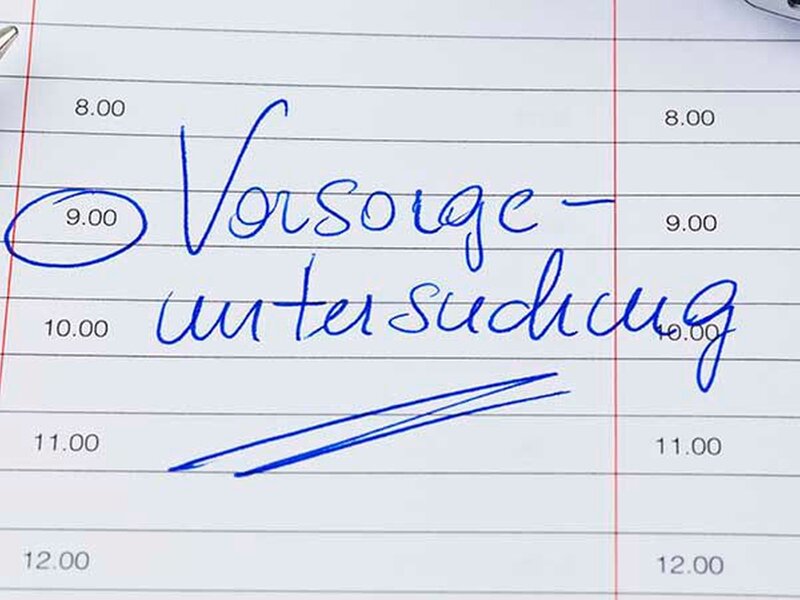 8.00 8.00
9.00 Vorsorge- 9.00
10.00 untersuchung 10.00
11.00 11.00
12.00 12.00